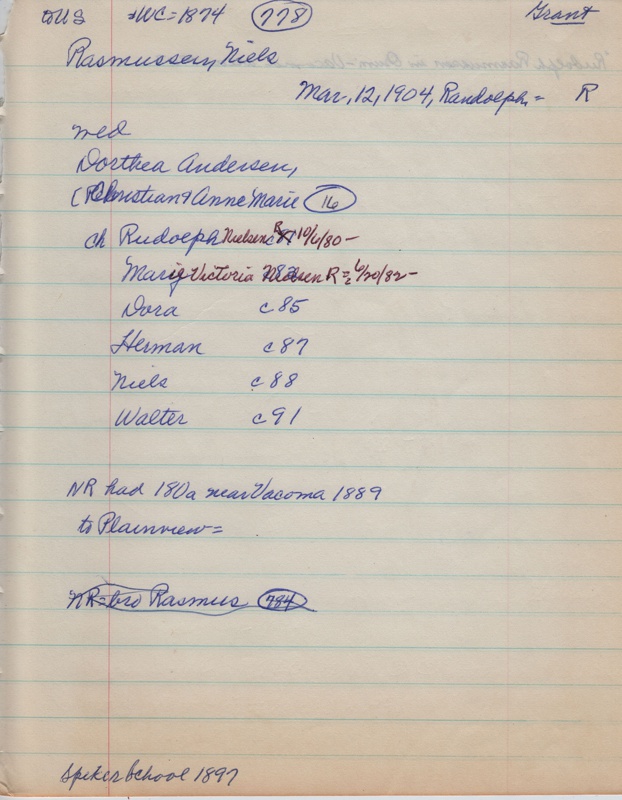 to US →WC=1874 778 Grant
Rasmussen, Niels
Mar, 12, 1904, Randolph = R
wed
Dorthea Andersen,
(Christian & Anne Marie 16
ch Rudolph Nielsen R 10/6/80 -
Marie Victoria Nielsen R = 6/20/82 -
Dora c85
Herman c87
Niels c88
Walter c91
NR had 180a near Vacoma 1889
to Plainview =
NR=bro Rasmus 784
Spiker School 1897